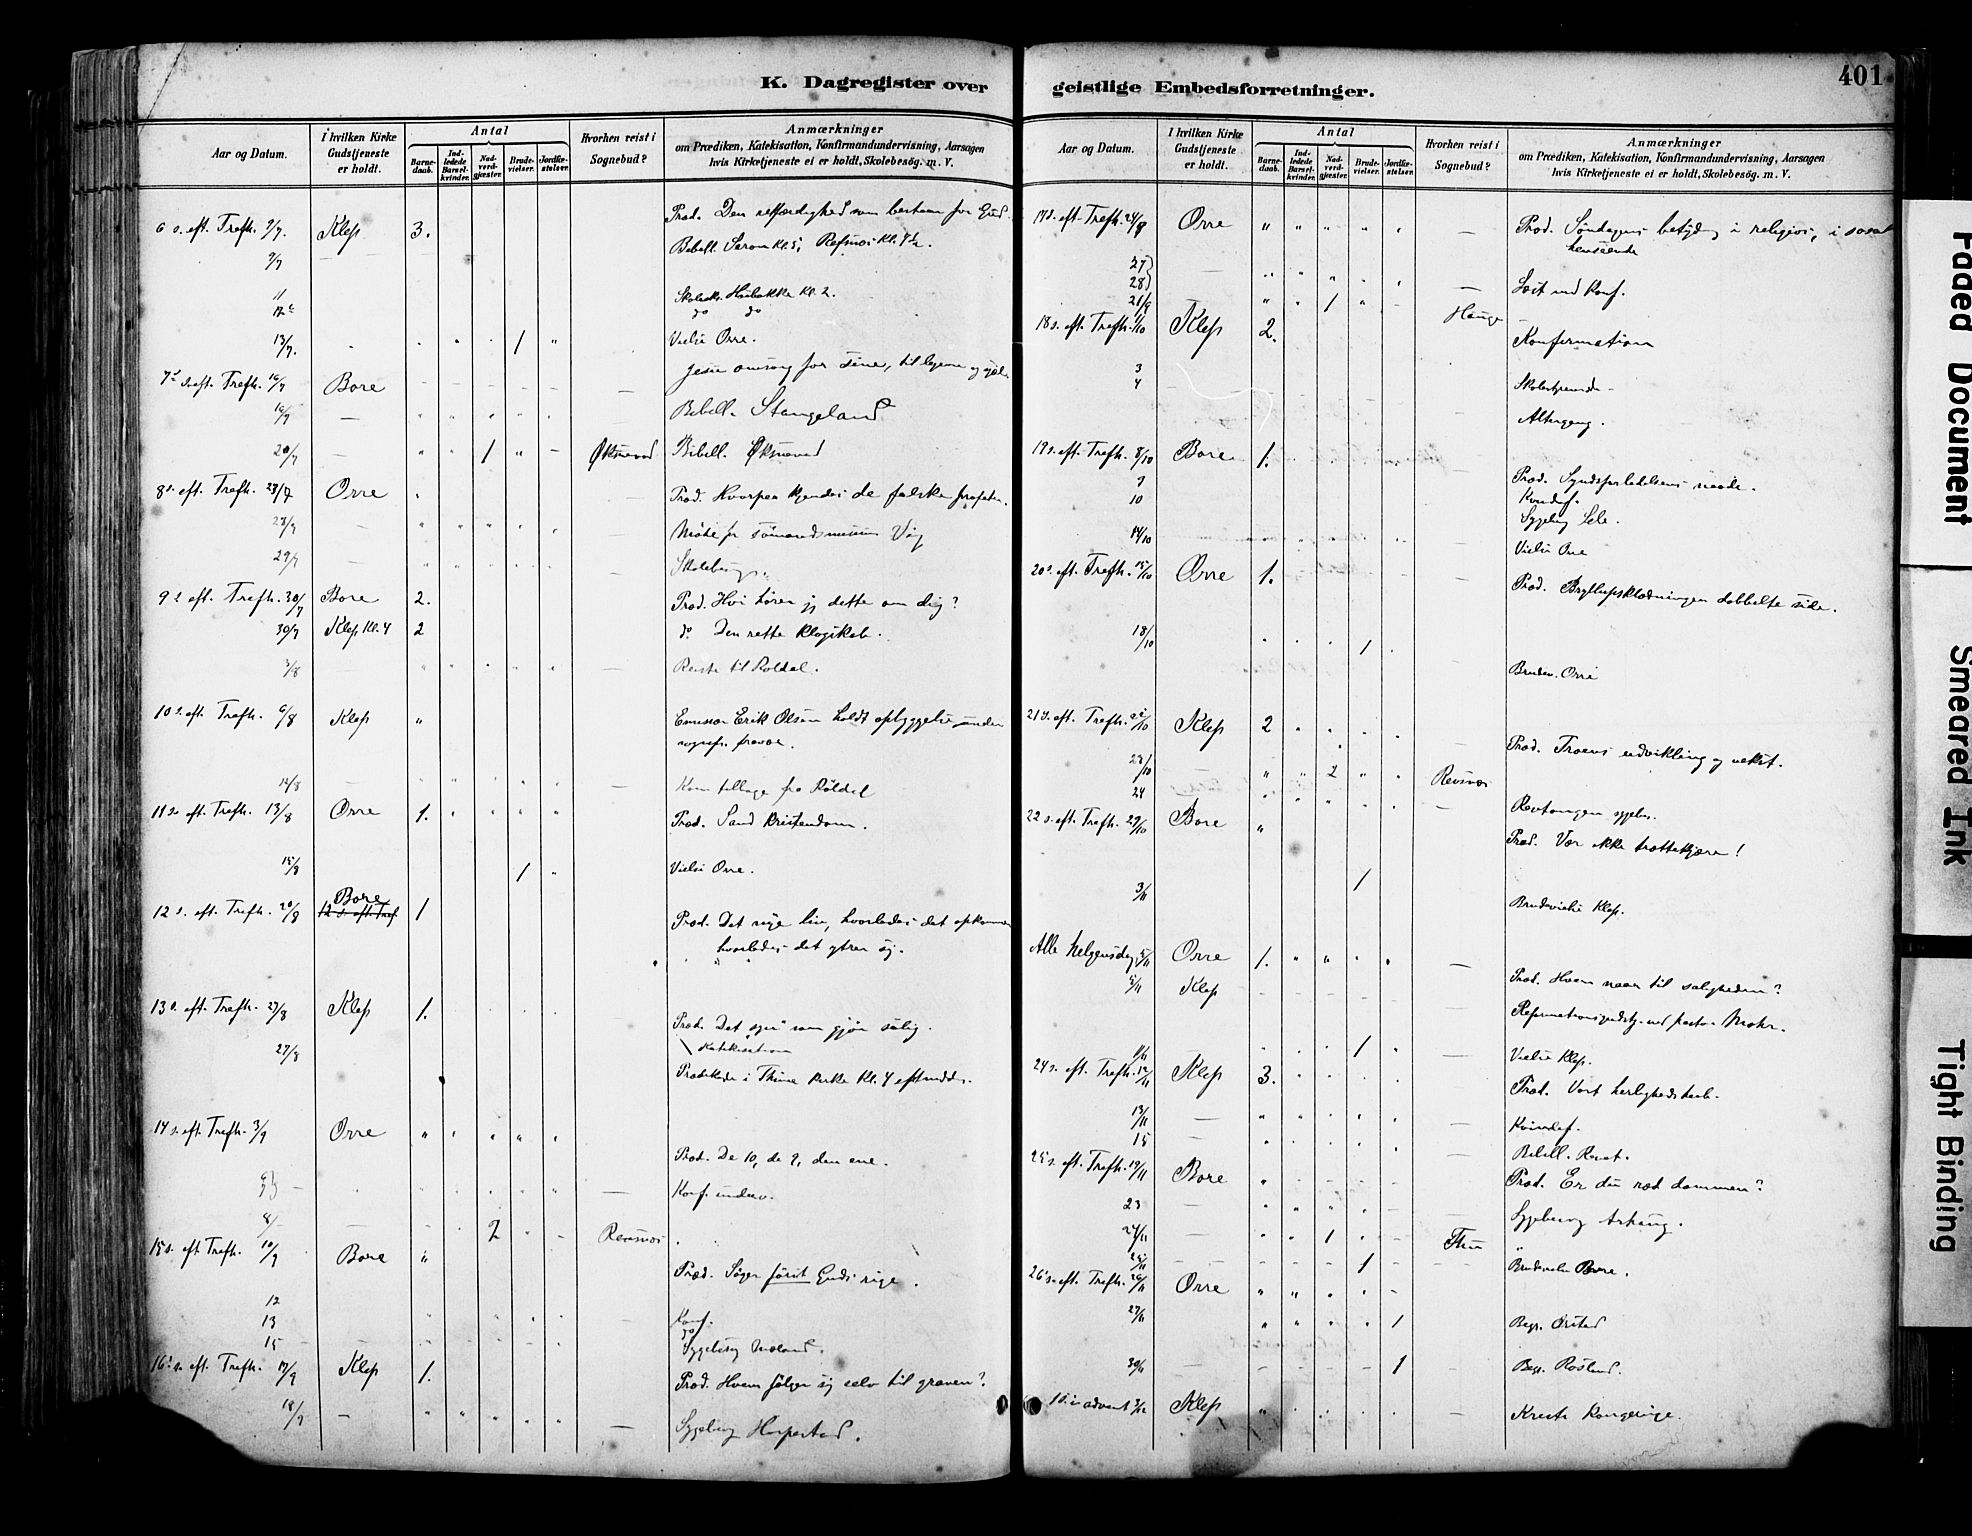 K. Dagregister over
geistlige Embedsforretninger.
401
Aar og Datum.
I hvilken Kirke Gudstjeneste er holdt.
Antal
Barnedaab.
Indledede Barselkvinder.
Nadverdgjæster.
Brudevielser.
Jordfæstelser.
Hvorhen reist i Sognebud?
Anmærkninger
om Prædiken, Katekisation, Konfirmandundervisning, Aarsagen
hvis Kirketjeneste ei er holdt, Skolebesøg. m. V.
6 s. eft. Trefh. 9/7. Klep 3. Præd. Den retfærdighed som bestaar for Gud.
9/7 Bibell. Kl. 5,
11 Kl. 2.
12 do do
13/7. 1 Vielse Orre.
7d s. eft. Trefh. 16/7 Bore Jesu omsorg for sine, til legeme og sjæl
16/7 Bibell. Stangeland
20/7 1 Øksnevad Bibell. Øksnevad
8 s. eft. Trefh. 23/7 Orre Præd. Hvorpaa kjendes de falske profeter.
23/7 Møde for
29/7
9 s. eft. Trefh. 30/7 Bore 2. Præd. Hvi hører jeg dette om dig?
30/7 Klep Kl. 4 2 do Den rette klogskab.
3/8 Reiste til Røldal.
10 s. eft. Trefh. 6/8 Klep Emissær Erik Olsen holdt opbyggelse under
sognepr. fravær.
12/8 Kom tilbage fra Røldal
11 s. eft. Trefh. 13/8 Orre 1. Præd. Sand kristendom.
15/8 1 Vielse Orre.
12 s. eft. Trefh. 20/8 Bore 12 s. eft. Tref 1 Præd. Det nye liv, hvorledes det opkommer
hvorledes det ytrer sig.
13 s. eft. Trefh. 27/8 Klep 1. Præd. Det syn som gjør salig.
Katekisation
27/8 Prædikede i Thime kirke Kl. 4 eftermidd.
14 s. eft. Trefh. 3/9 Orre Præd. De 10, de 9, den ene.
Konf. underv.
8/ 2
15 s. eft Trefh. 10/9 Bore Præd. Søger først Guds rige.
12 Konf.
13 do
15 Sygebesøg
16 s. eft. Trefh. 17/9 Klep 1. Præd. Hvem følger sig selv til graven?
18/9 Sygebesøg Horpestad.
Aar og Datum.
I hvilken Kirke Gudstjeneste er holdt.
Antal
Barnedaab.
Indledede Barselkvinder.
Nadverdgjæster.
Brudevielser.
Jordfæstelser.
Hvorhen reist i Sognebud?
Anmærkninger
om Prædiken, Katekisation, Konfirmandundervisning, Aarsagen
hvis Kirketjeneste ei er holdt, Skolebesøg. m. V.
17 s. eft. Trefh. 24/9 Orre Præd. Søndagens betydning i religiøs, i social
henseende
27
28 Læst med Konf.
1 Hauge
18 s. eft. Trefh. 1/10 Klep 2. Konfirmation
3 Skolestyremøde
4 Altergang.
19 s. eft. Trefh. 8/10 Bore 1. Præd. Syndsforladelsens naade.
9 Kvindef.
10 Sygebesøg Sele.
14/10 Vielse Orre
20 s. eft. Trefh. 15/10 Orre 1. Præd. Bryllupsklædningen dobbelte side.
18/10 1 Brudev. Orre
21 s. eft. Trefh. 22/10 Klep 2 Præd. Troens udvikling og vekst.
23/10 2
24
22 s. eft. Trefh. 29/10 Bore Præd. Vær ikke trættekjære!
3/11 1 Brudevielse Klep.
Alle helgensdag 5/11 Orre 1. Præd. Hvem naar til saligheden?
5/11 Klep Reformationsgudstj. ved pastor Mohr.
11/11 1 Vielse Klep.
24 s. eft. Trefh. 12/11 Klep 3. Præd. Vort herlighedshaab.
13/11 Kvindef.
15 Bibell.
25 s. eft. Trefh. 19/11 Bore Præd. Er du ræd dommen?
23 Sygebesøg
24/11 1
25/11 1 Brudevielse Bore.
26 s. eft. Trefh. 26/11 Orre
27/11 1 Begr.
30/11 1 Begr.
1 s. i advent 3/12 Klep Kristi Kongerige.
Faded Document
Smeared Ink
Tight Binding